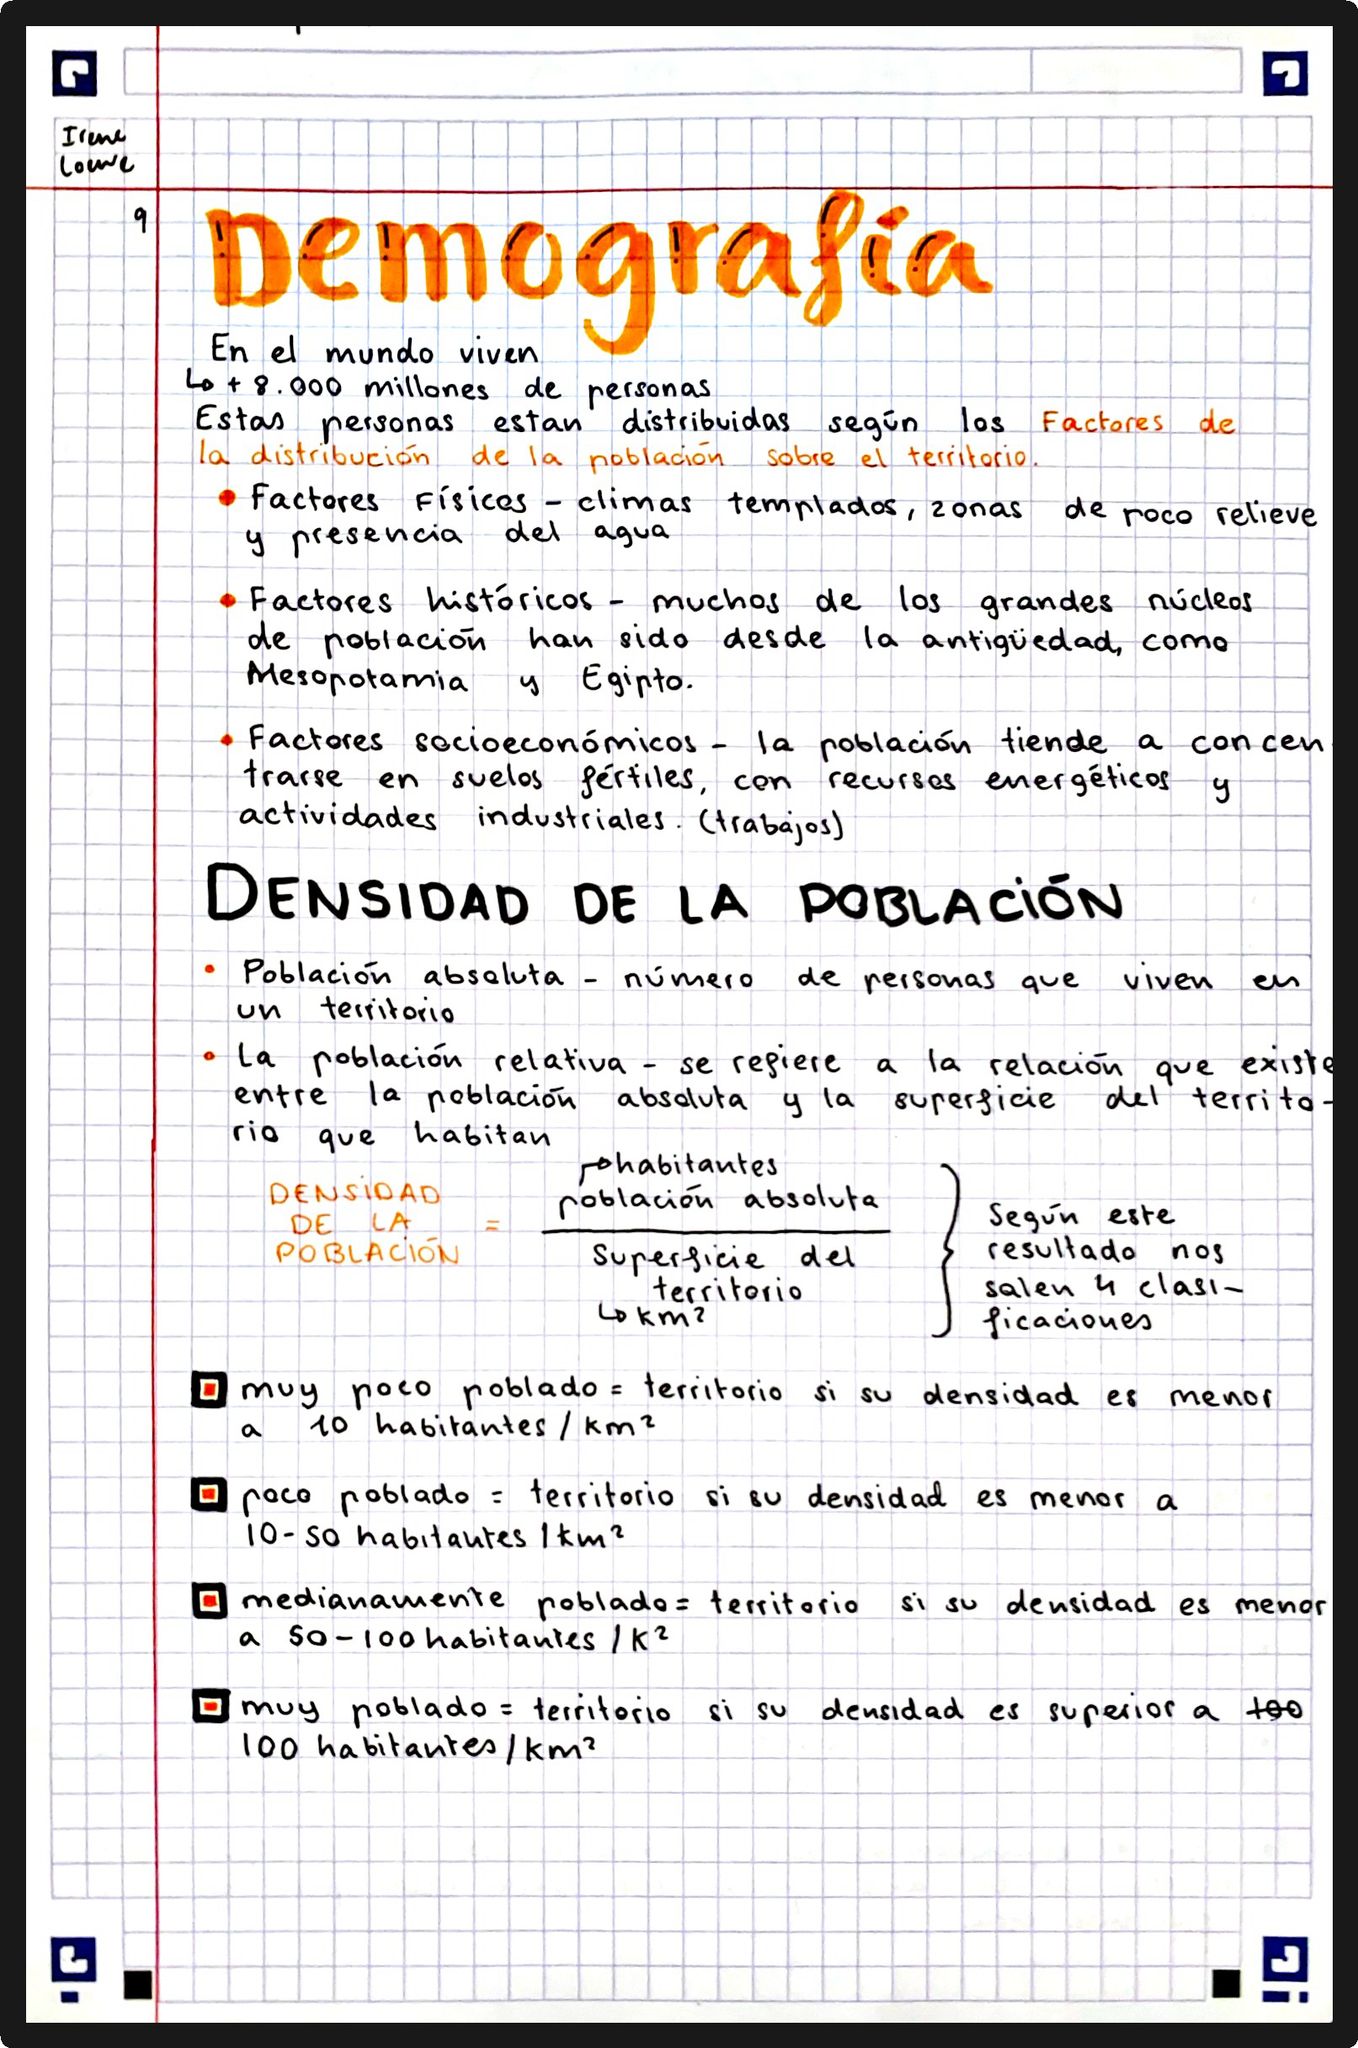 Irene
9
Demografía
En el mundo viven
↳ + 8.000 millones de personas
Estas personas estan distribuidas según los Factores de
la distribución de la población sobre el territorio.
• Factores Físicos - climas templados, zonas de poco relieve
y presencia del agua
• Factores históricos - muchos de los grandes núcleos
de población han sido desde la antigüedad, como
Mesopotamia y Egipto.
• Factores socioeconómicos - la población tiende a concen-
trarse en suelos fértiles, con recursos energéticos y
actividades industriales. (trabajos)
DENSIDAD DE LA POBLACIÓN
• Población absoluta - número de personas que viven en
un territorio
• La población relativa - se refiere a la relación que existe
entre la población absoluta y la superficie del territo-
rio que habitan
DENSIDAD
DE LA
POBLACIÓN
=
↱ habitantes
población absoluta
superficie del
territorio
↳ km²
Según este
resultado nos
salen 4 clasi-
ficaciones
muy poco poblado = territorio si su densidad es menor
a 10 habitantes / km²
poco poblado = territorio si su densidad es menor a
10-50 habitantes / km²
medianamente poblado = territorio si su densidad es menor
a 50-100 habitantes / k²
muy poblado = territorio si su densidad es superior a 100
100 habitantes / km²